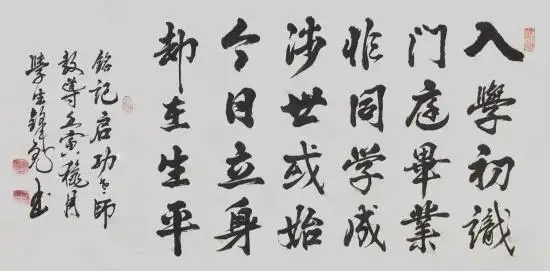 入學初識
門庭畢業
非同學成
涉世或始
今日立身
却在生平
銘記启功老師
教導壬寅月
學生書